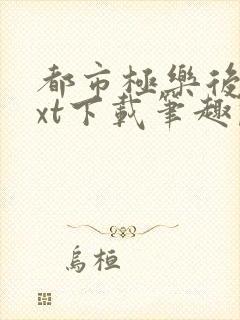 都市極樂後
xt下載筆趣
烏桓